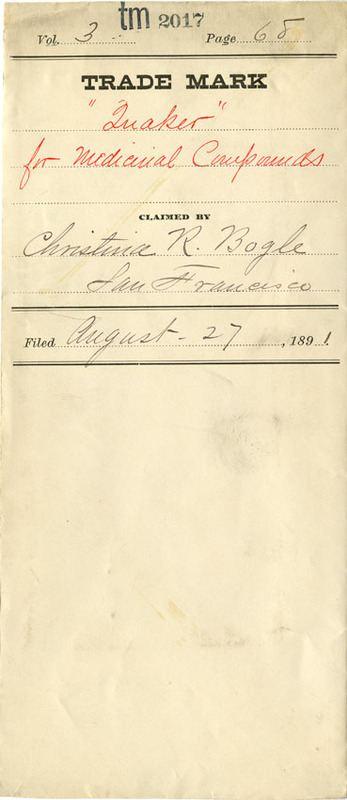 tm 2017
Vol. 3 Page 68
TRADE MARK
"Quaker"
for Medicinal Compounds
CLAIMED BY
Christina R. Bogle
San Francisco
Filed August - 27, 1891.